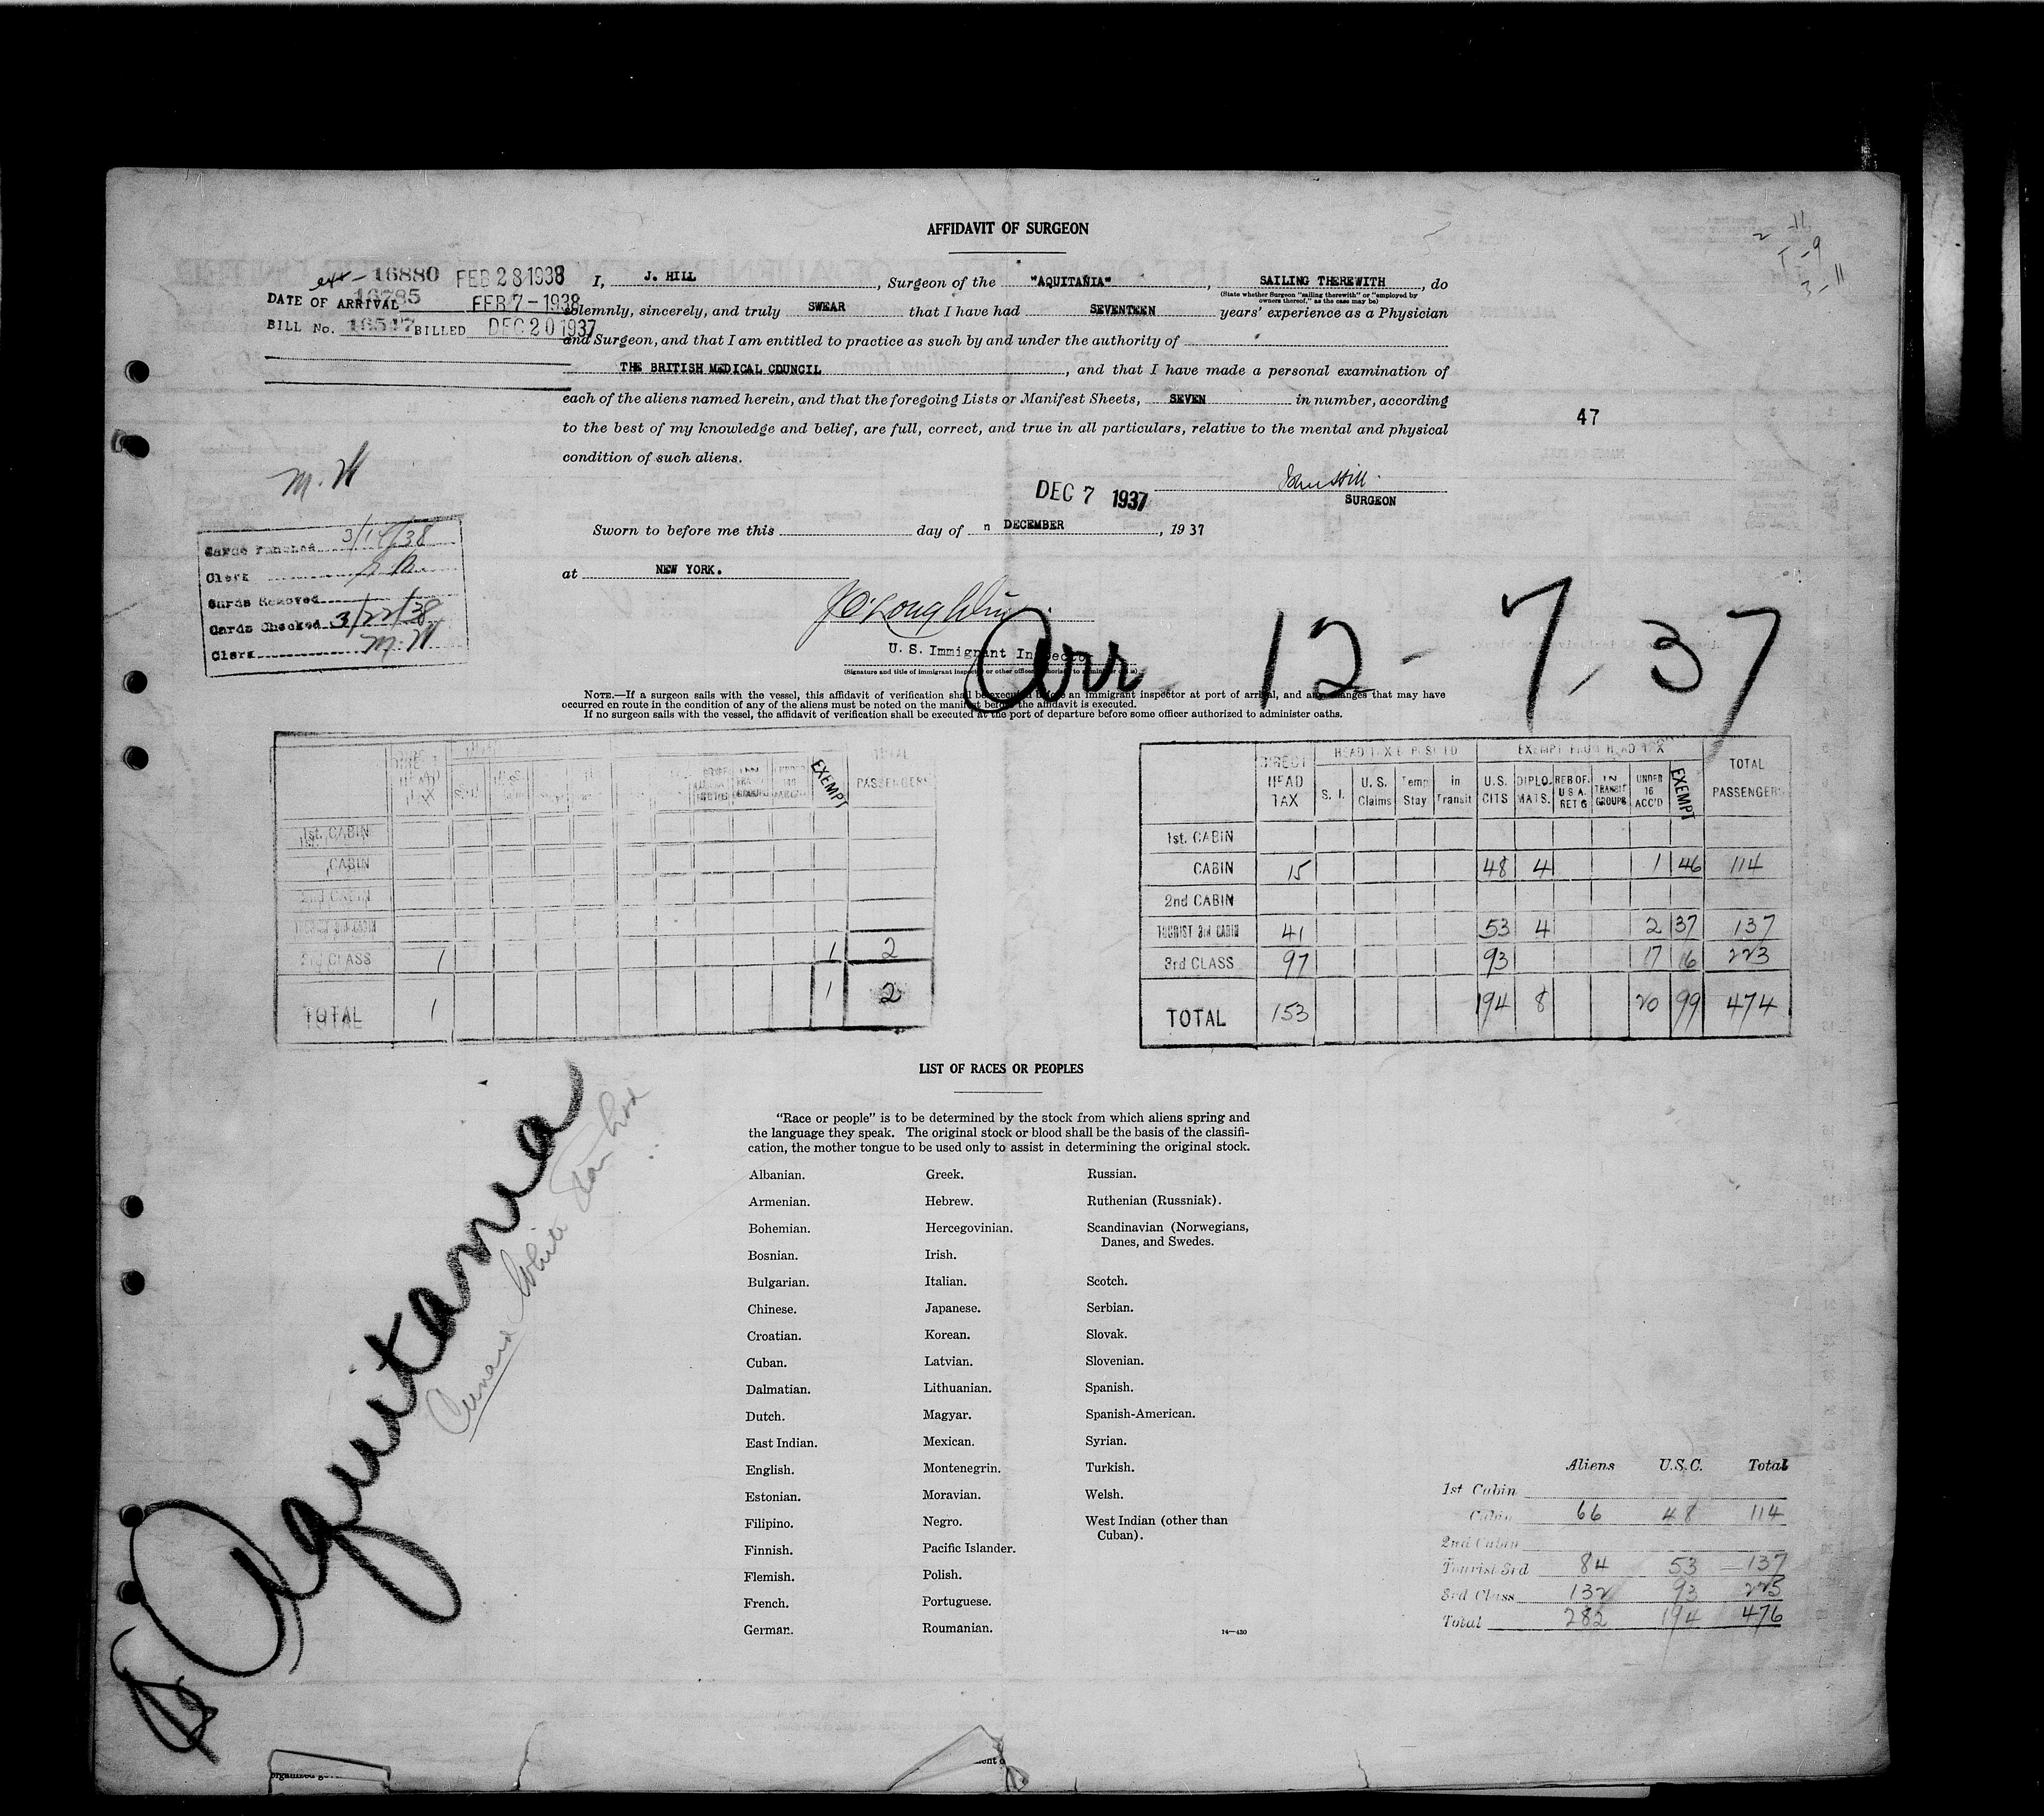 AFFIDAVIT OF SURGEON
2 - 11
T - 9
3 - 11
ext - 16880 FEB 28 1938
DATE OF ARRIVAL 16785 FEB 7 - 1938
BILL No. 16517 BILLED DEC 20 1937
I, J. HILL, Surgeon of the "AQUITANIA", SAILING THEREWITH, do
(State whether Surgeon "sailing therewith" or "employed by
owners thereof," as the case may be)
solemnly, sincerely, and truly SWEAR that I have had SEVENTEEN years' experience as a Physician
and Surgeon, and that I am entitled to practice as such by and under the authority of
THE BRITISH MEDICAL COUNCIL, and that I have made a personal examination of
each of the aliens named herein, and that the foregoing Lists or Manifest Sheets, SEVEN in number, according
to the best of my knowledge and belief, are full, correct, and true in all particulars, relative to the mental and physical
condition of such aliens.
47
M. H
DEC 7 1937 John Hill.
SURGEON
Sworn to before me this day of DECEMBER, 1937
at NEW YORK.
Cards Punched 3/17/38
Clerk
Cards Removed
Cards Checked 3/22/38
Clerk M. H
U. S. Immigrant Inspector
(Signature and title of immigrant inspector or other officer authorized to administer oaths)
Arr 12 - 7, 37
NOTE.—If a surgeon sails with the vessel, this affidavit of verification shall be executed before an immigrant inspector at port of arrival, and any changes that may have
occurred en route in the condition of any of the aliens must be noted on the manifest before the affidavit is executed.
If no surgeon sails with the vessel, the affidavit of verification shall be executed at the port of departure before some officer authorized to administer oaths.
DIRECT HEAD TAX EXEMPT TOTAL PASSENGERS
1st. CABIN
CABIN
2nd CABIN
TOURIST 3rd CABIN
3rd CLASS 1 1 2
TOTAL 1 1 2
HEAD TAX DEPOSITED EXEMPT FROM HEAD TAX
DIRECT HEAD TAX S. I. U. S. Claims Temp Stay in Transit U.S. CITS DIPLO. MATS. REB OF. U S A. RET G IN TRANSIT GROUPS UNDER 16 ACC'D EXEMPT TOTAL PASSENGERS
1st. CABIN
CABIN 15 48 4 1 46 114
2nd CABIN
TOURIST 3rd CABIN 41 53 4 2 37 137
3rd CLASS 97 93 17 16 223
TOTAL 153 194 8 20 99 474
LIST OF RACES OR PEOPLES
"Race or people" is to be determined by the stock from which aliens spring and
the language they speak. The original stock or blood shall be the basis of the classifi-
cation, the mother tongue to be used only to assist in determining the original stock.
Albanian.
Armenian.
Bohemian.
Bosnian.
Bulgarian.
Chinese.
Croatian.
Cuban.
Dalmatian.
Dutch.
East Indian.
English.
Estonian.
Filipino.
Finnish.
Flemish.
French.
German.
Greek.
Hebrew.
Hercegovinian.
Irish.
Italian.
Japanese.
Korean.
Latvian.
Lithuanian.
Magyar.
Mexican.
Montenegrin.
Moravian.
Negro.
Pacific Islander.
Polish.
Portuguese.
Roumanian.
Russian.
Ruthenian (Russniak).
Scandinavian (Norwegians,
Danes, and Swedes.
Scotch.
Serbian.
Slovak.
Slovenian.
Spanish.
Spanish-American.
Syrian.
Turkish.
Welsh.
West Indian (other than
Cuban).
14—430
SS Aquitania
Cunard White Star Line
Aliens U.S.C. Total
1st Cabin
Cabin 66 48 114
2nd Cabin
Tourist 3rd 84 53 137
3rd Class 132 93 225
Total 282 194 476